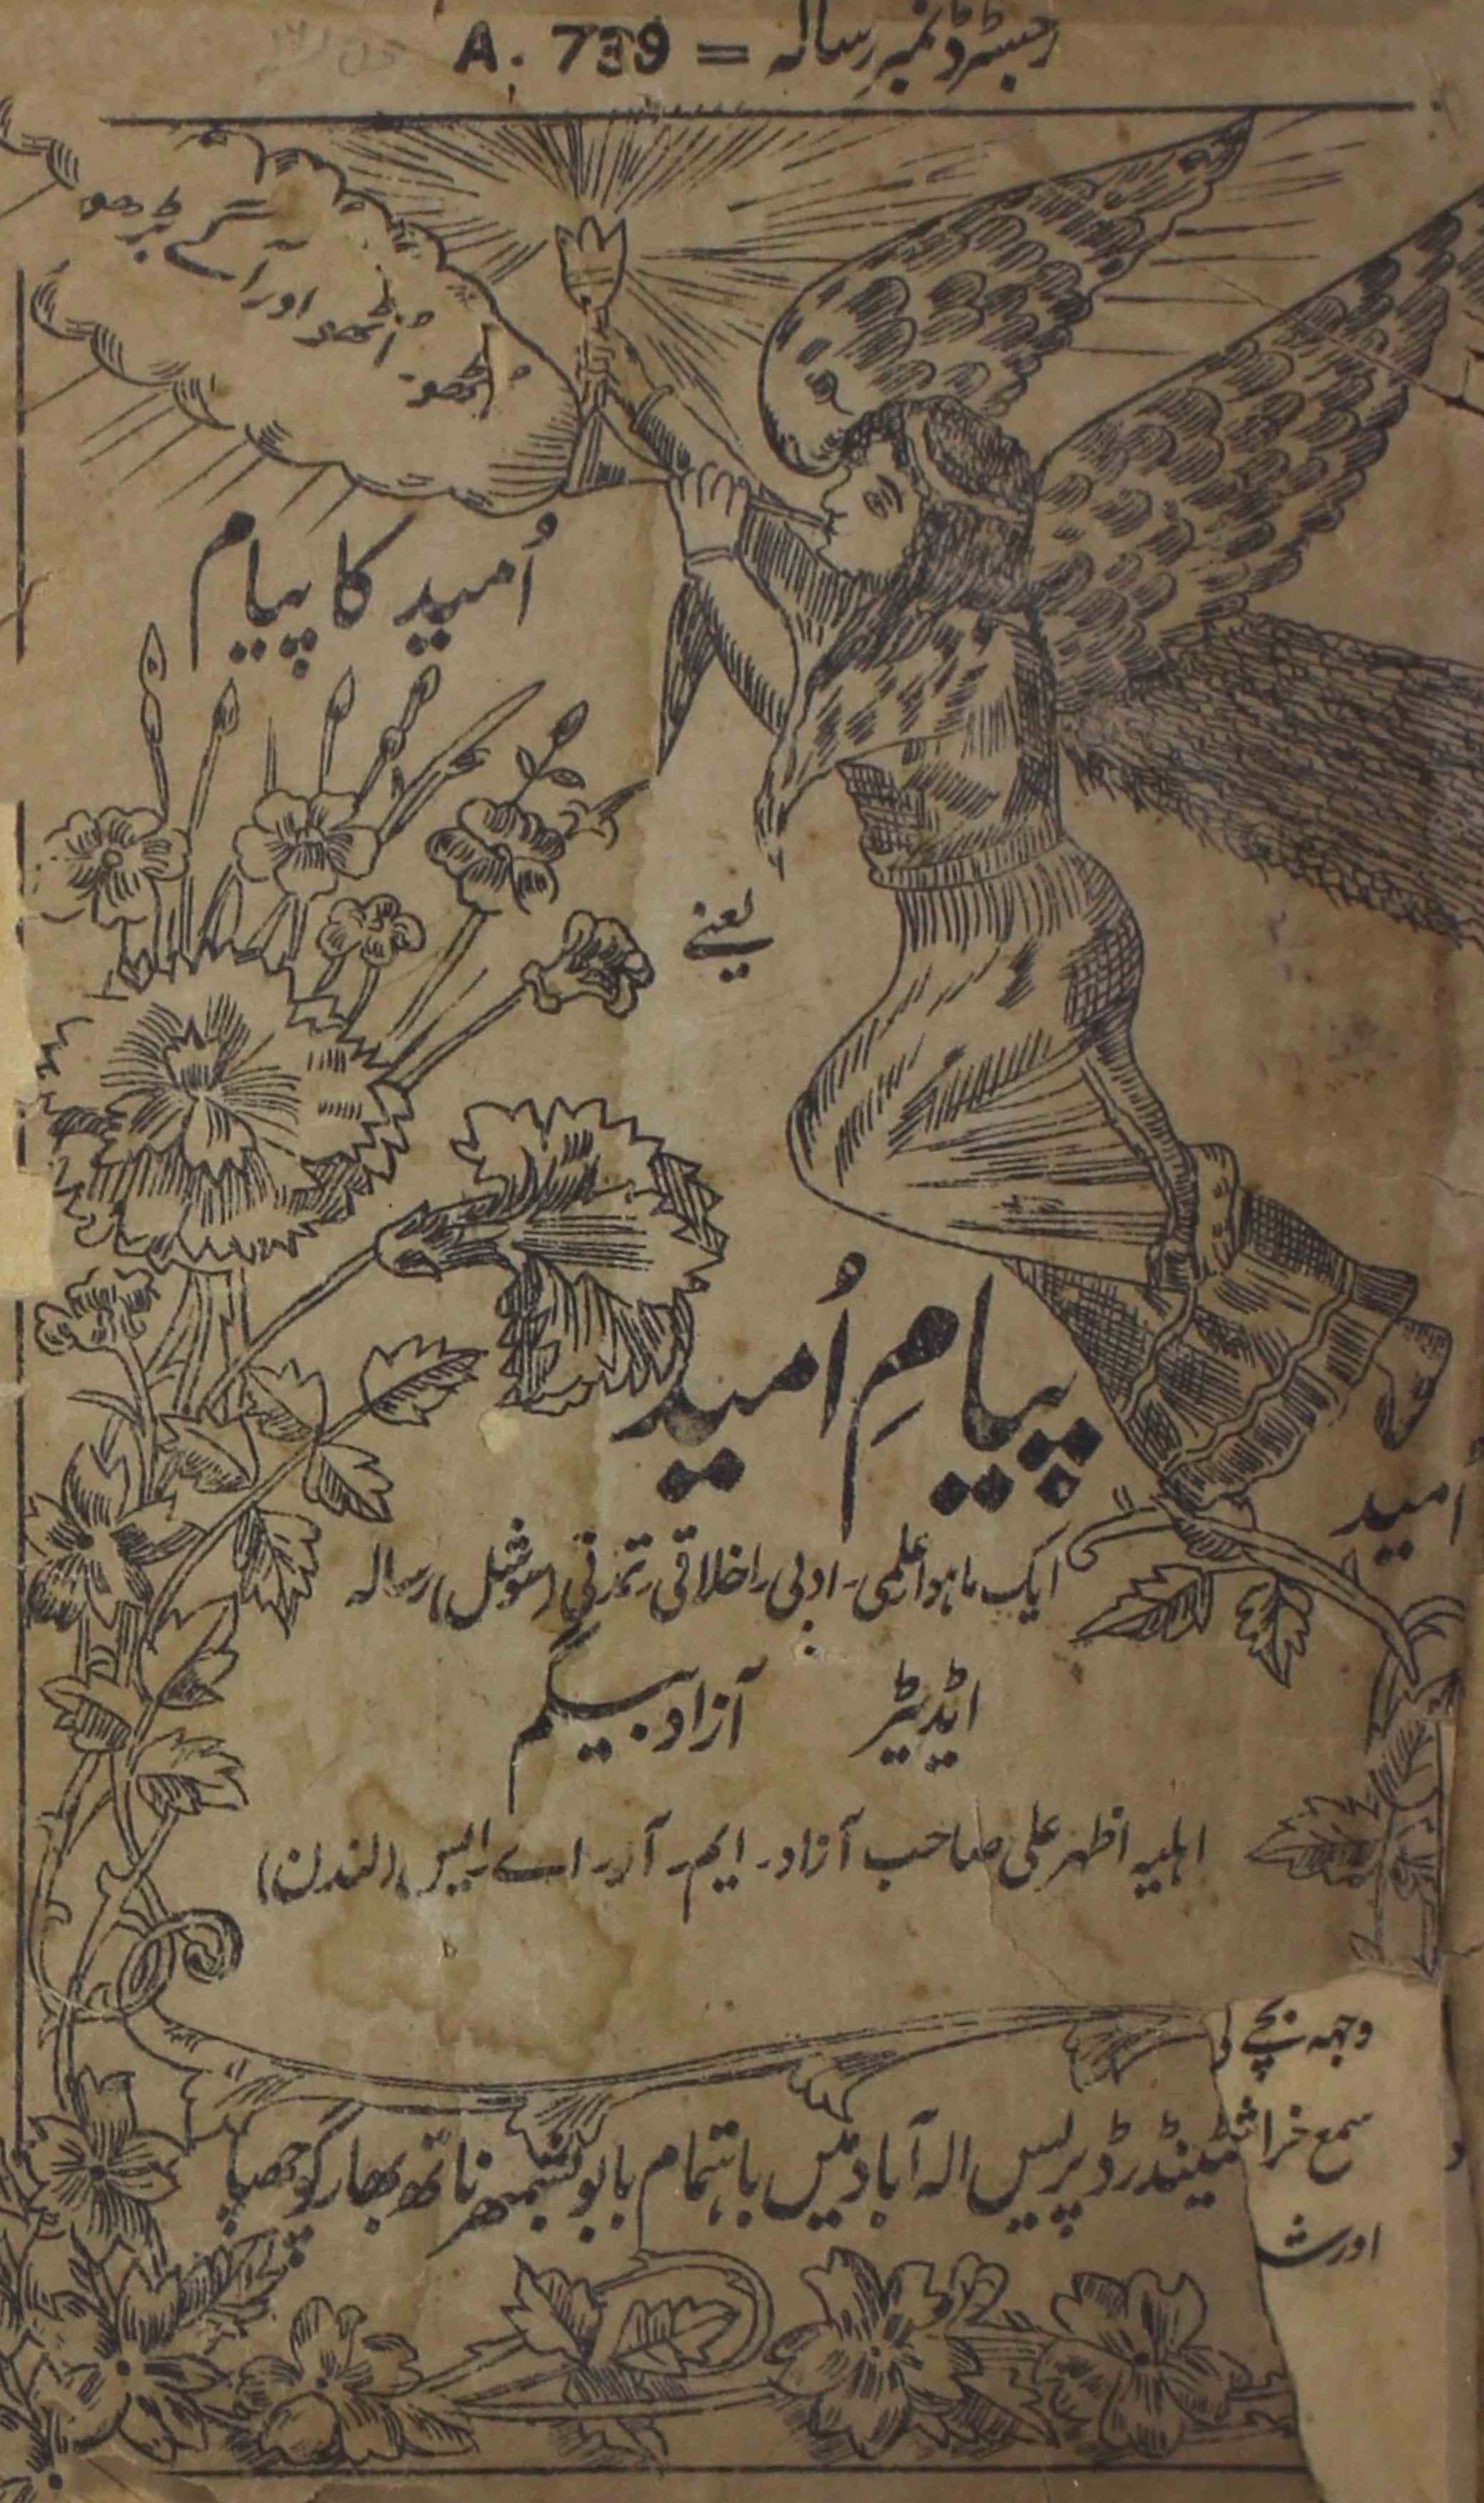 رجسٹرڈ نمبر رسالہ = A. 739
اُٹھو اُٹھو اور آگے بڑھو
اُمید کا پیام
یعنے
پیامِ اُمید
اُمید
ایک ماہوار علمی - ادبی - اخلاقی - تمدنی (سوشیل) رسالہ
ایڈیٹر آزاد بیگم
اہلیہ اظہر علی صاحب آزاد - ایم - آر - اے - ایس (لندن)
وجہہ نیچے
سمع خراش
سٹینڈرڈ پریس الہ آباد میں باہتمام بابو بشمبھر ناتھ بھارگو چھپا
اور